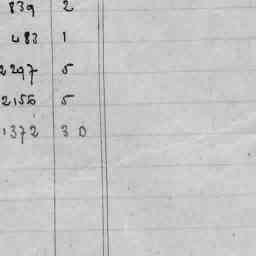 839 2
483 1
2297 5
2156 5
1372 30